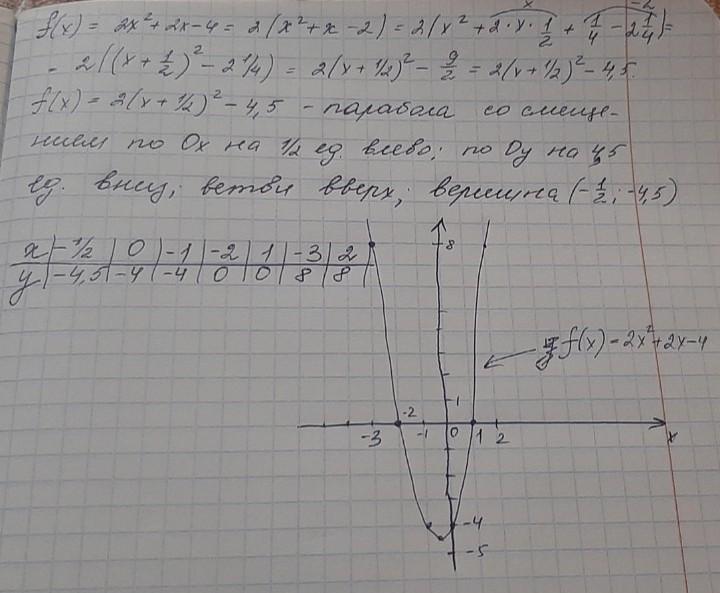 f(x) = 2x² + 2x - 4 = 2(x² + x - 2) = 2(x² + 2·x·1/2 + 1/4 - 2 1/4) =
x
-2
= 2((x + 1/2)² - 2 1/4) = 2(x + 1/2)² - 9/2 = 2(x + 1/2)² - 4,5.
f(x) = 2(x + 1/2)² - 4,5 - парабола со смеще-
нием по Ox на 1/2 ед. влево; по Oy на 4,5
ед. вниз; ветви вверх; вершина (-1/2; -4,5)
x | -1/2 | 0 | -1 | -2 | 1 | -3 | 2
y | -4,5 | -4 | -4 | 0 | 0 | 8 | 8
8
f(x) = 2x² + 2x - 4
1
-2
-3 -1 0 1 2 x
-4
-5